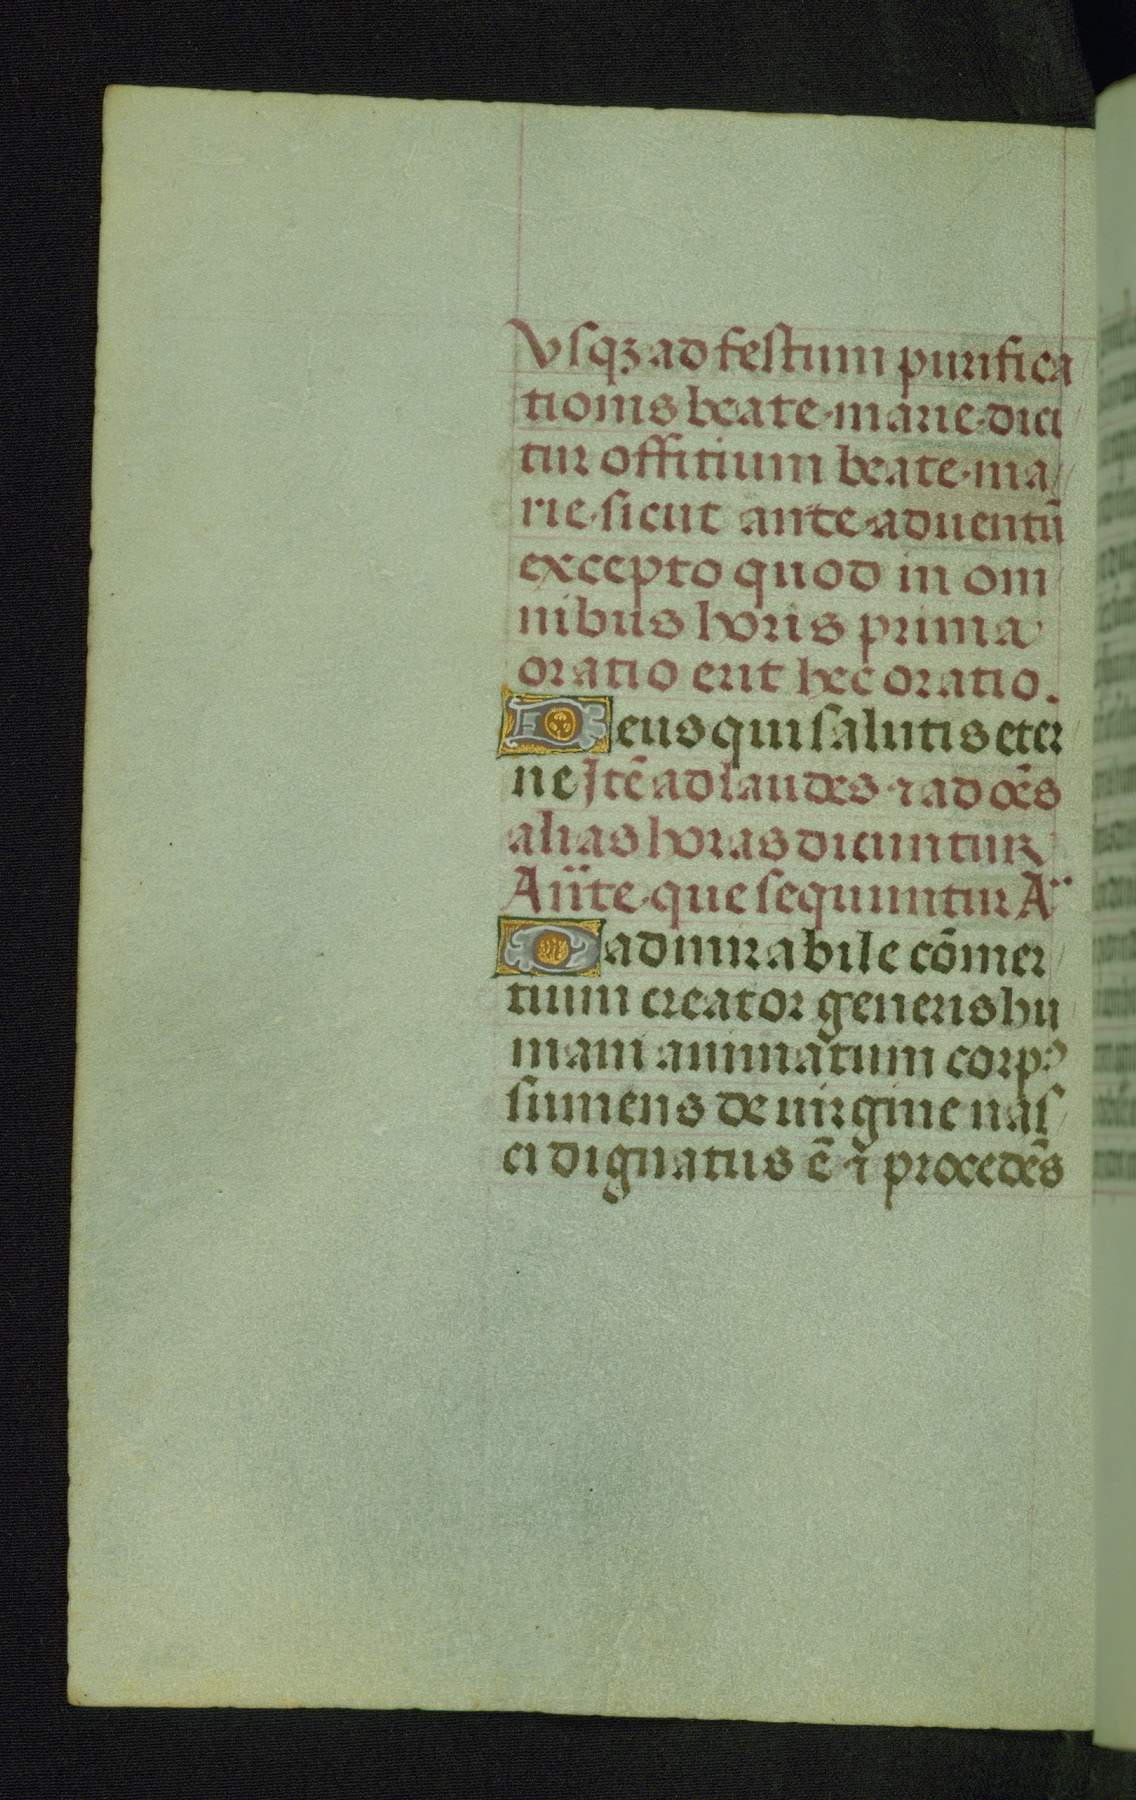 Vsqꝫ ad festum purifica
tionis beate marie dici
tur offitium beate ma
rie sicut ante aduentū
excepto quod in om
nibus horis prima
oratio erit hec oratio.
Deus qui salutis eter
ne Itē ad laudes ⁊ ad oēs
alias horas dicuntur
Añte que sequuntur A
O admirabile cōmer
tium creator generis hu
mani animatum corpꝰ
sumens de uirgine nas
ci dignatus ē ⁊ procedēs